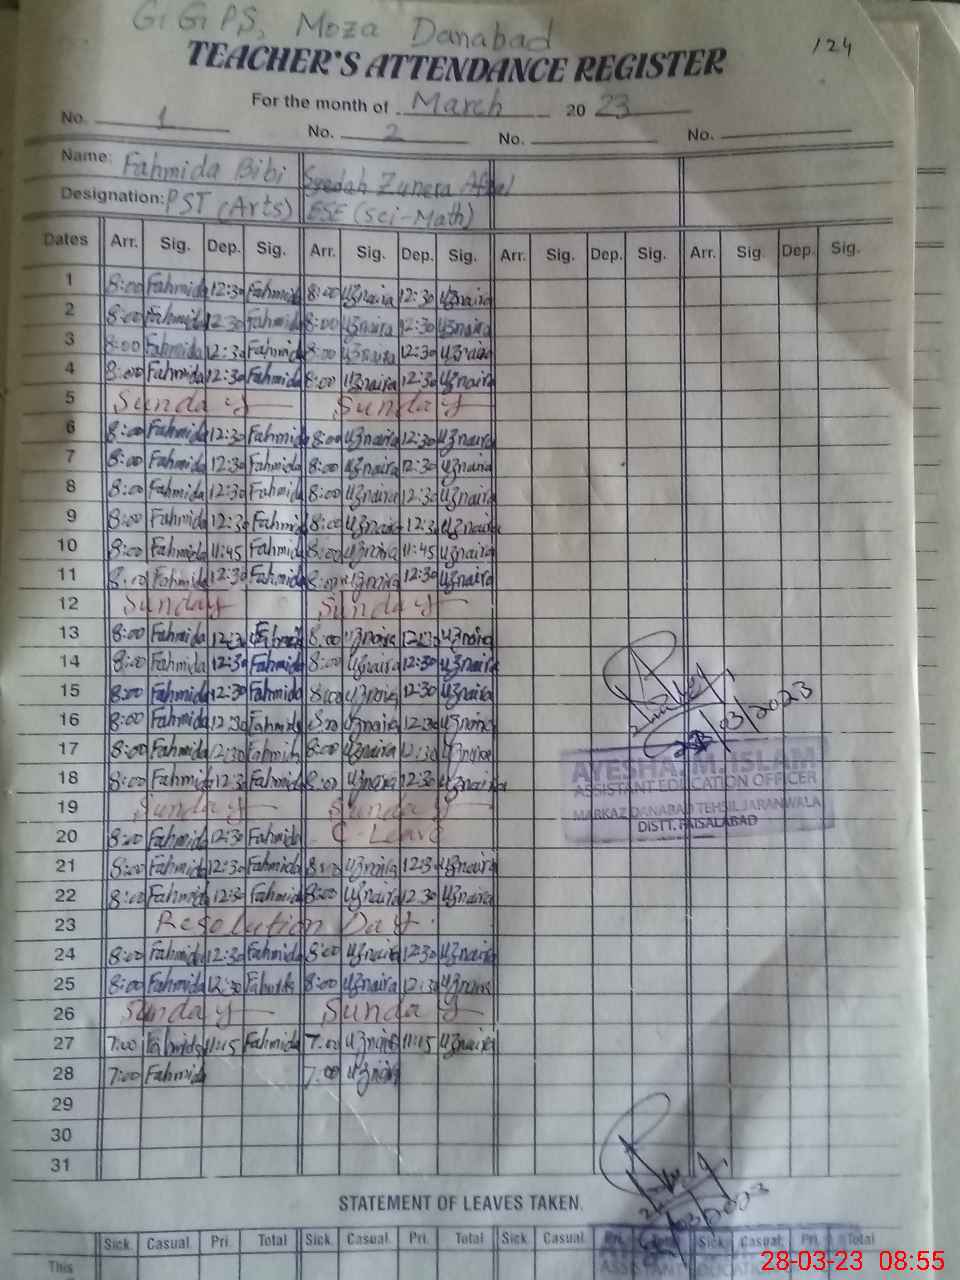 G.G.PS, Moza Danabad
124
TEACHER'S ATTENDANCE REGISTER
For the month of March 2023
No. 1 No. 2 No. No.
Name: Fahmida Bibi Syedah Zunera
Designation: PST (Arts) ESE (Sci-Math)
Dates Arr. Sig. Dep. Sig. Arr. Sig. Dep. Sig. Arr. Sig. Dep. Sig. Arr. Sig. Dep. Sig.
1 8:00 Fahmida 12:30 Fahmida 8:00 Uznaira 12:30 Uznaira
2 8:00 Fahmida 12:30 Fahmida 8:00 Uznaira 12:30 Uznaira
3 8:00 Fahmida 12:30 Fahmida 8:00 Uznaira 12:30 Uznaira
4 8:00 Fahmida 12:30 Fahmida 8:00 Uznaira 12:30 Uznaira
5 Sunday Sunday
6 8:00 Fahmida 12:30 Fahmida 8:00 Uznaira 12:30 Uznaira
7 8:00 Fahmida 12:30 Fahmida 8:00 Uznaira 12:30 Uznaira
8 8:00 Fahmida 12:30 Fahmida 8:00 Uznaira 12:30 Uznaira
9 8:00 Fahmida 12:30 Fahmida 8:00 Uznaira 12:30 Uznaira
10 8:00 Fahmida 11:45 Fahmida 8:00 Uznaira 11:45 Uznaira
11 8:00 Fahmida 12:30 Fahmida 8:00 Uznaira 12:30 Uznaira
12 Sunday Sunday
13 8:00 Fahmida 12:30 Fahmida 8:00 Uznaira 12:30 Uznaira
14 8:00 Fahmida 12:30 Fahmida 8:00 Uznaira 12:30 Uznaira
15 8:00 Fahmida 12:30 Fahmida 8:00 Uznaira 12:30 Uznaira
16 8:00 Fahmida 12:30 Fahmida 8:00 Uznaira 12:30 Uznaira
17 8:00 Fahmida 12:30 Fahmida 8:00 Uznaira 12:30 Uznaira
18 8:00 Fahmida 12:30 Fahmida 8:00 Uznaira 12:30 Uznaira
19 Sunday Sunday
20 8:00 Fahmida 12:30 Fahmida C-Leave
21 8:00 Fahmida 12:30 Fahmida 8:00 Uznaira 12:30 Uznaira
22 8:00 Fahmida 12:30 Fahmida 8:00 Uznaira 12:30 Uznaira
23 Resolution Day
24 8:00 Fahmida 12:30 Fahmida 8:00 Uznaira 12:30 Uznaira
25 8:00 Fahmida 12:30 Fahmida 8:00 Uznaira 12:30 Uznaira
26 Sunday Sunday
27 7:00 Fahmida 11:15 Fahmida 7:00 Uznaira 11:15 Uznaira
28 7:00 Fahmida 7:00 Uznaira
29
30
31
/03/2023
AYESHA. M. ISLAM
ASSISTANT EDUCATION OFFICER
MARKAZ DANABAD TEHSIL JARANWALA
DISTT. FAISALABAD
STATEMENT OF LEAVES TAKEN.
Sick. Casual. Pri. Total Sick. Casual. Pri. Total Sick. Casual. Pri. Sick. Casual. Pri. Total
This
ASSISTANT EDUCATION
28-03-23 08:55